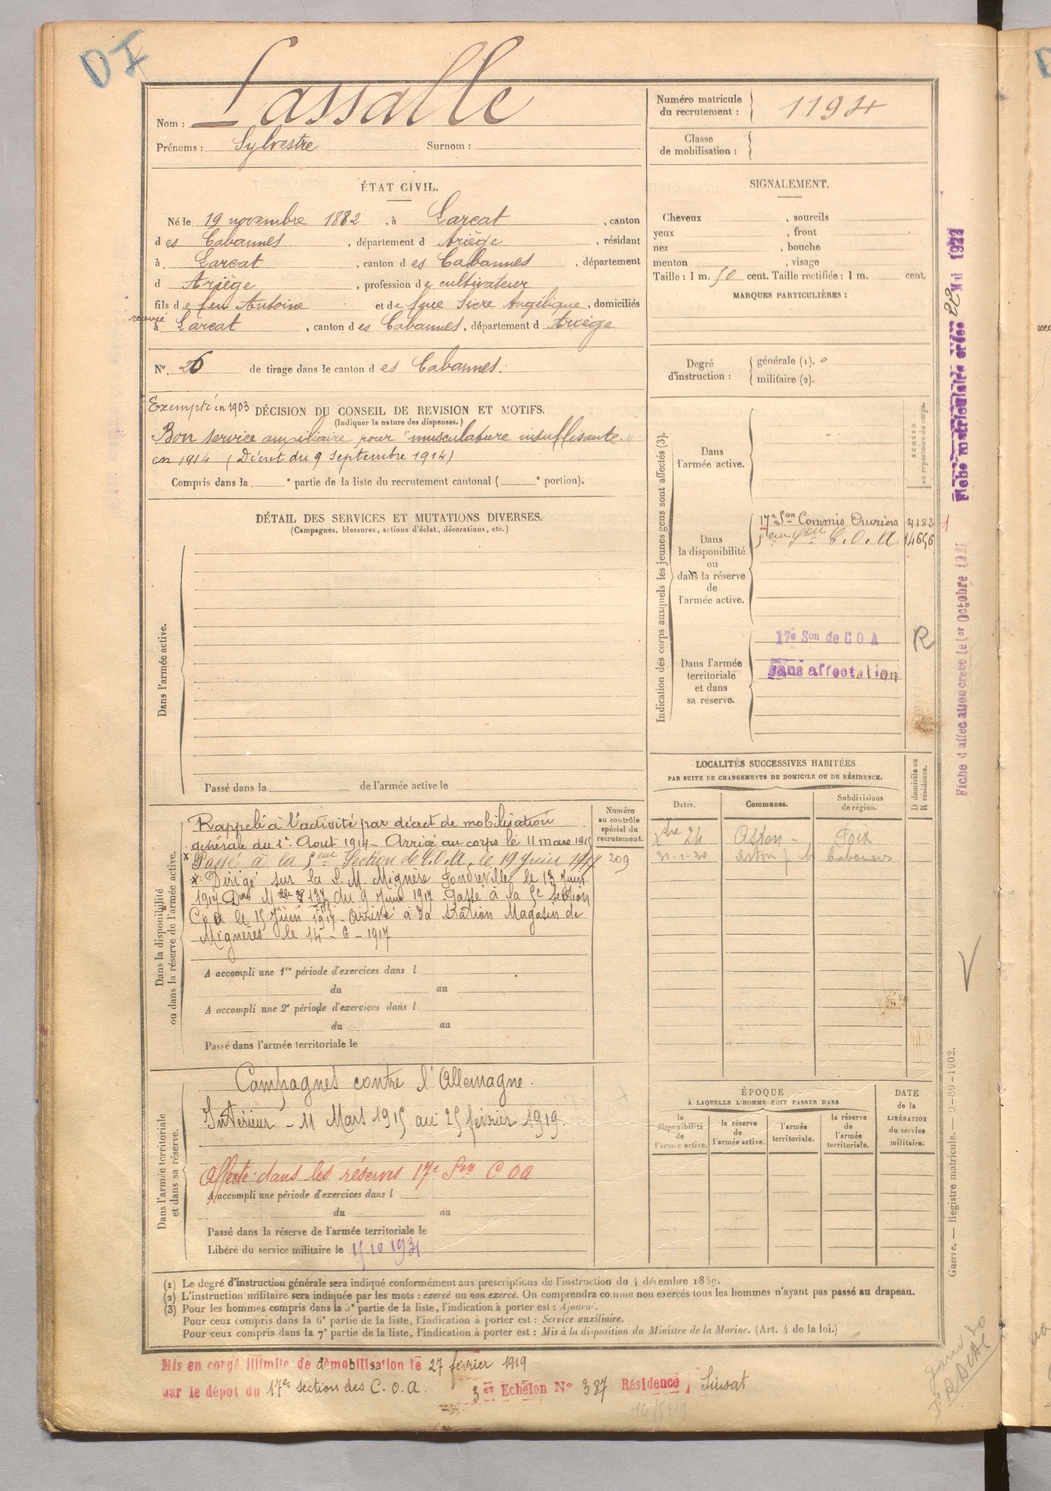 DI
Nom : Lassalle
Prénoms : Sylvestre Surnom :
Numéro matricule du recrutement : 1194
Classe de mobilisation :
ÉTAT CIVIL.
Né le 19 novembre 1882, à Larcat, canton
des Cabannes, département d Ariège, résidant
à Larcat, canton des Cabannes, département
d Ariège, profession de cultivateur
fils de feu Antoine et de feue Sicre Angélique, domiciliés
à Larcat, canton des Cabannes, département d Ariège
N° 26 de tirage dans le canton des Cabannes.
Exempté en 1903 DÉCISION DU CONSEIL DE REVISION ET MOTIFS.
(Indiquer la nature des dispenses.)
Bon service auxiliaire pour "musculature insuffisante"
en 1914 (Décret du 9 Septembre 1914)
Compris dans la e partie de la liste du recrutement cantonal ( e portion).
DÉTAIL DES SERVICES ET MUTATIONS DIVERSES.
(Campagnes, blessures, actions d'éclat, décorations, etc.)
Dans l'armée active.
Passé dans la de l'armée active le
SIGNALEMENT.
Cheveux , sourcils
yeux , front
nez , bouche
menton , visage
Taille : 1 m. 50 cent. Taille rectifiée : 1 m. cent.
MARQUES PARTICULIÈRES :
Degré d'instruction : générale (1). 0
militaire (2).
Indication des corps auxquels les jeunes gens sont affectés (3).
Dans l'armée active.
Dans la disponibilité ou dans la réserve de l'armée active.
17e Son Commis Ouvriers 4183
5eme Son C.O.A. 14656
Dans l'armée territoriale et dans sa réserve.
17e Son de C O A
Sans affectation
R
LOCALITÉS SUCCESSIVES HABITÉES
PAR SUITE DE CHANGEMENTS DE DOMICILE OU DE RÉSIDENCE.
Dates. Communes. Subdivisions de région. D domicile ou R résidence.
Xbre 24 Aston Foix
Dans la disponibilité ou dans la réserve de l'armée active.
Numéro au contrôle spécial du recrutement.
Rappelé à l'activité par décret de mobilisation
générale du 1er Août 1914 - Arrivé au corps le 11 mars 1915
Passé à la 5eme Section de C.O.A. le 19 juin 1917 209
Dirigé sur la S.M. Mignère Gondreville le 13 Juin
1917 du 9 Juin 1917 Passé à la 5e section
C O A le 15 Juin 1917 - Arrivé à la Station Magasin de
Mignères le 14-6-1917
A accompli une 1re période d'exercices dans l
du au
A accompli une 2e période d'exercices dans l
du au
Passé dans l'armée territoriale le
Dans l'armée territoriale et dans sa réserve.
Campagnes contre l'Allemagne.
Intérieur - 11 Mars 1915 au 25 février 1919.
Affecté dans les réserves 17e Son C O A
A accompli une période d'exercices dans l
du au
Passé dans la réserve de l'armée territoriale le
Libéré du service militaire le 15 10 1931
ÉPOQUE
À LAQUELLE L'HOMME DOIT PASSER DANS
la disponibilité de l'armée active. la réserve de l'armée active. l'armée territoriale. la réserve de l'armée territoriale.
DATE de la LIBÉRATION du service militaire.
(1) Le degré d'instruction générale sera indiqué conformément aux prescriptions de l'instruction du 4 décembre 1889.
(2) L'instruction militaire sera indiquée par les mots : exercé ou non exercé. On comprendra comme non exercés tous les hommes n'ayant pas passé au drapeau.
(3) Pour les hommes compris dans la 5e partie de la liste, l'indication à porter est : Ajourné.
Pour ceux compris dans la 6e partie de la liste, l'indication à porter est : Service auxiliaire.
Pour ceux compris dans la 7e partie de la liste, l'indication à porter est : Mis à la disposition du Ministre de la Marine. (Art. 4 de la loi.)
Mis en congé illimité de démobilisation le 27 février 1919
par le dépôt du 17e section des C.O.A. 3 er Echelon N° 387 Résidence Sinsat
Guerre. — Registre matricule. — 9-89-1902.